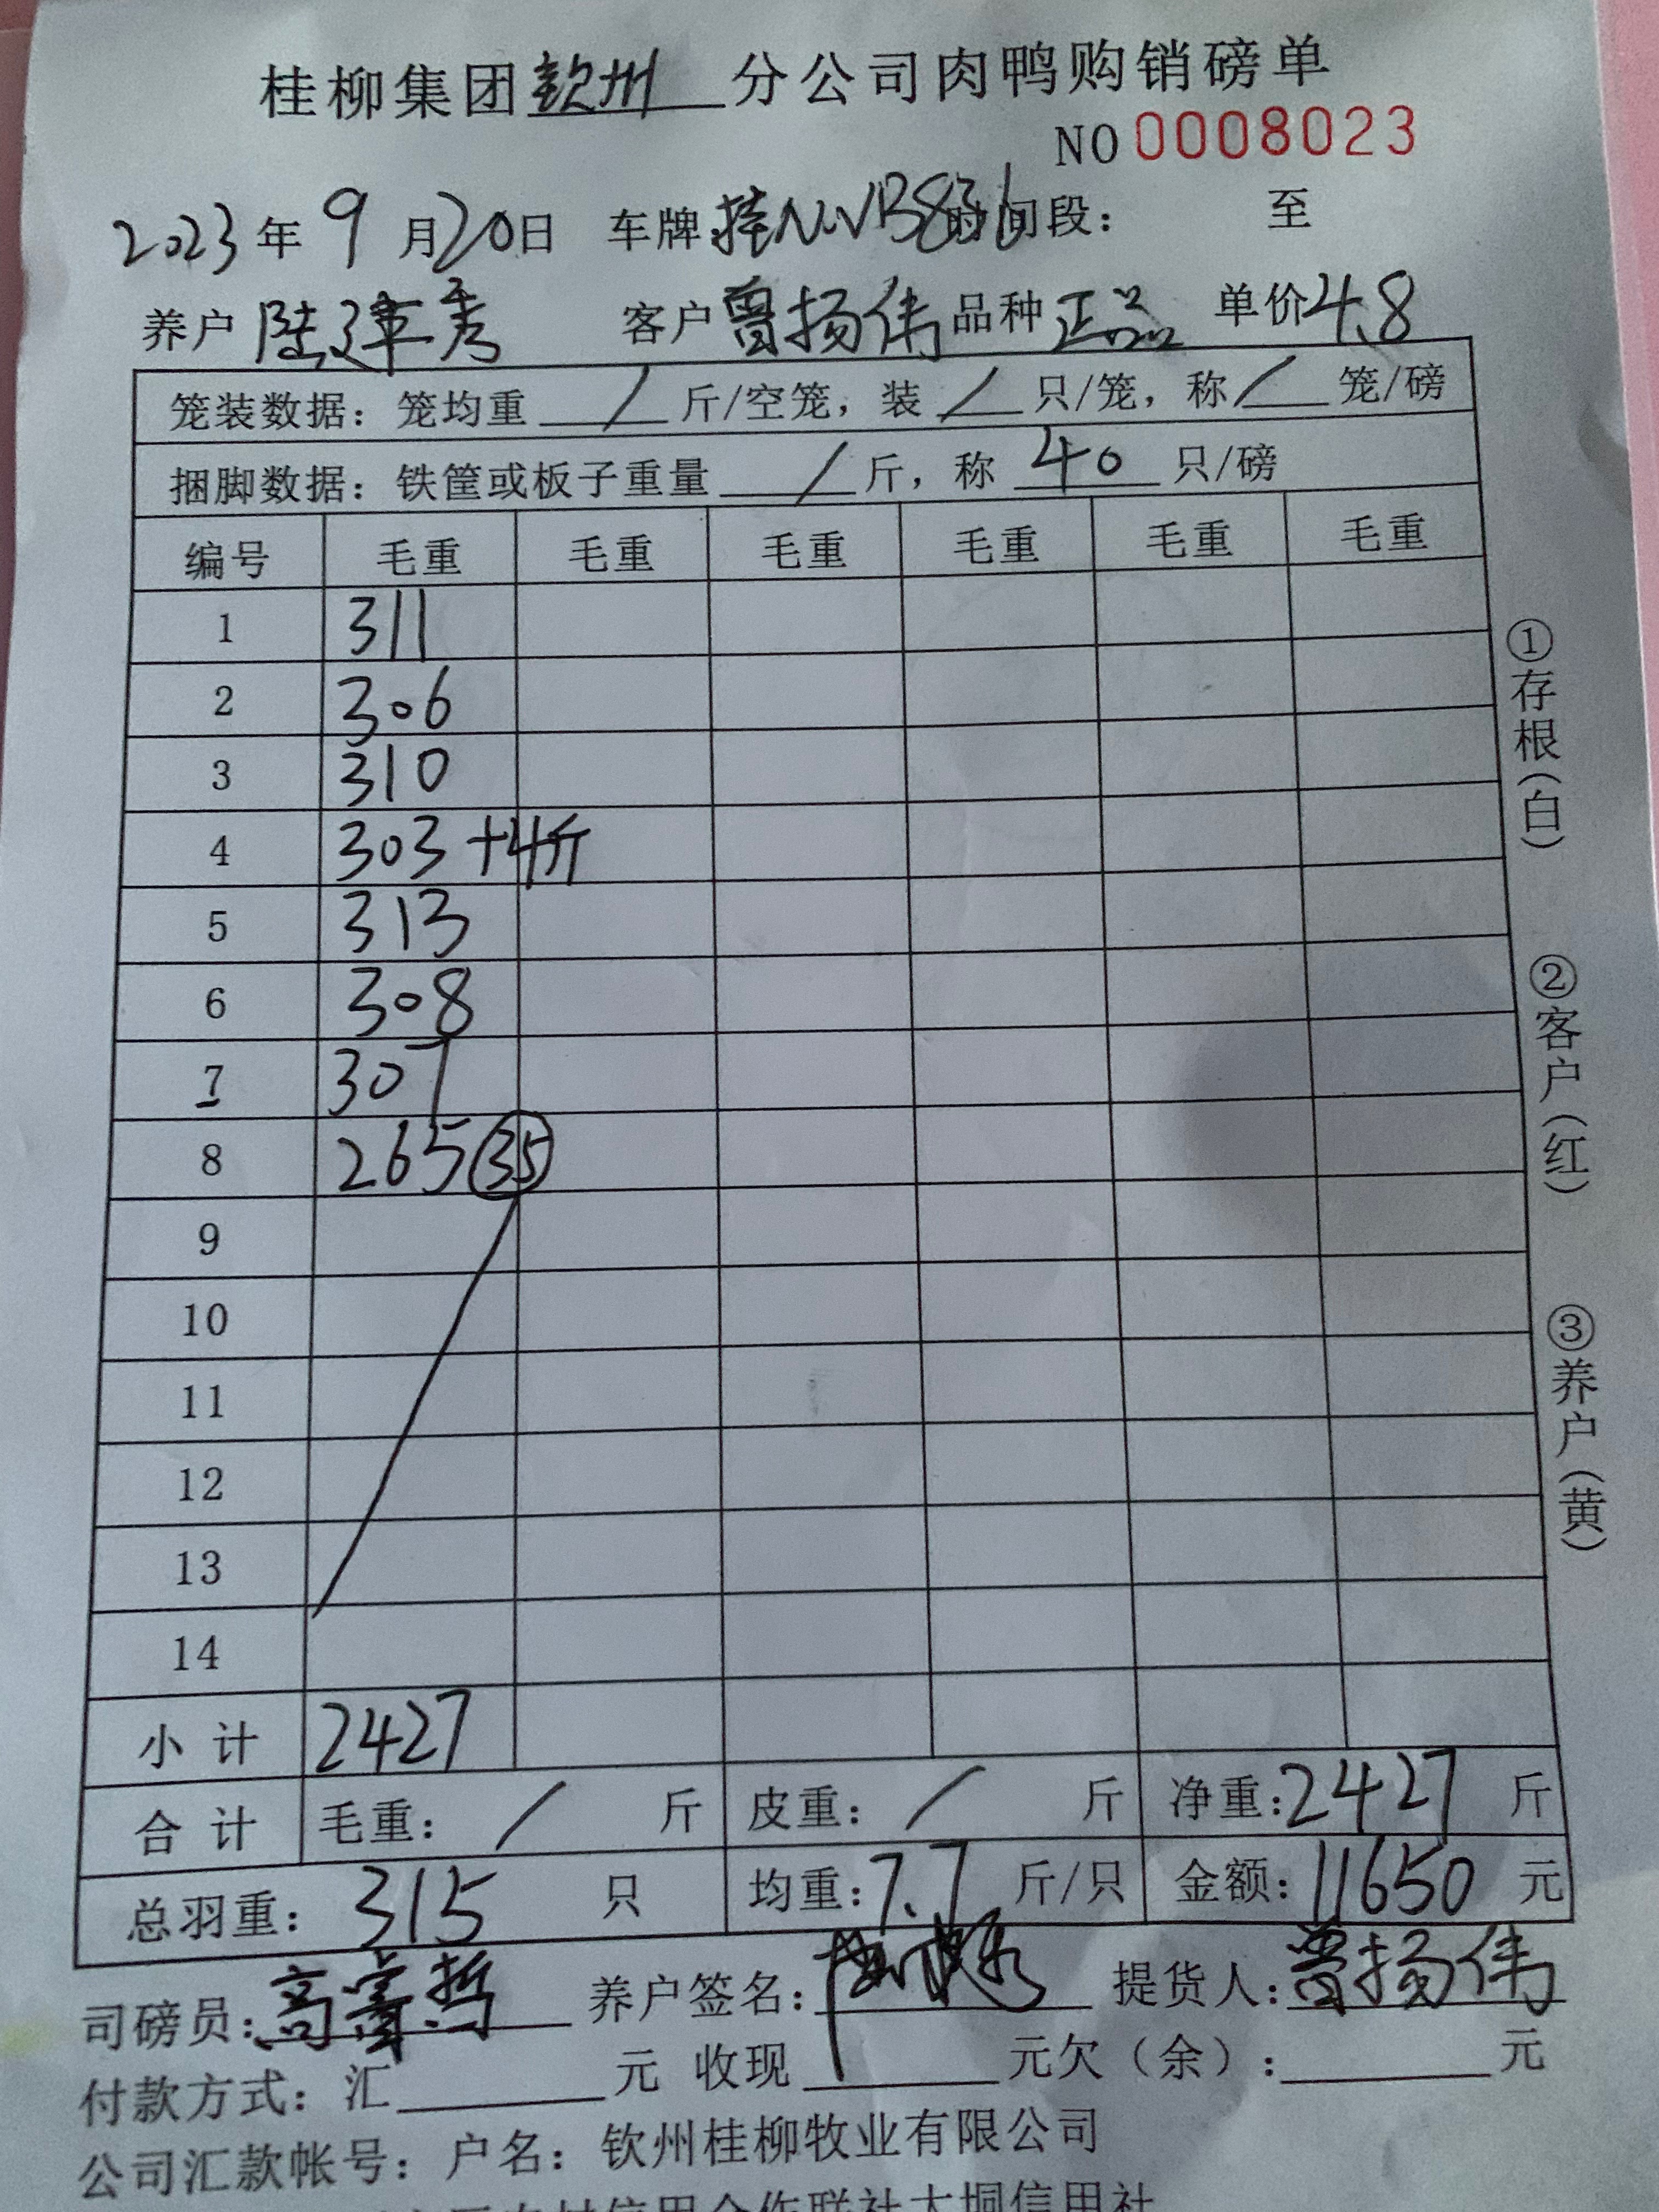 桂柳集团钦州分公司肉鸭购销磅单
NO 0008023
2023年9月20日 车牌:桂N·VB836 时间段: 至
养户 陆建秀 客户 曾扬伟 品种 正品 单价 4.8
笼装数据:笼均重 / 斤/空笼,装 / 只/笼,称 / 笼/磅
捆脚数据:铁筐或板子重量 / 斤,称 40 只/磅
编号 毛重 毛重 毛重 毛重 毛重 毛重
1 311
2 306
3 310
4 303+4斤
5 313
6 308
7 307
8 265 35
9
10
11
12
13
14
小计 2427
合计 毛重: / 斤 皮重: / 斤 净重:2427 斤
总羽重:315 只 均重:7.7 斤/只 金额:11650 元
司磅员: 养户签名: 提货人:曾扬伟
付款方式:汇 元 收现 元欠(余): 元
公司汇款帐号:户名:钦州桂柳牧业有限公司
信用合作联社大垌信用社
①存根(白)
②客户(红)
③养户(黄)